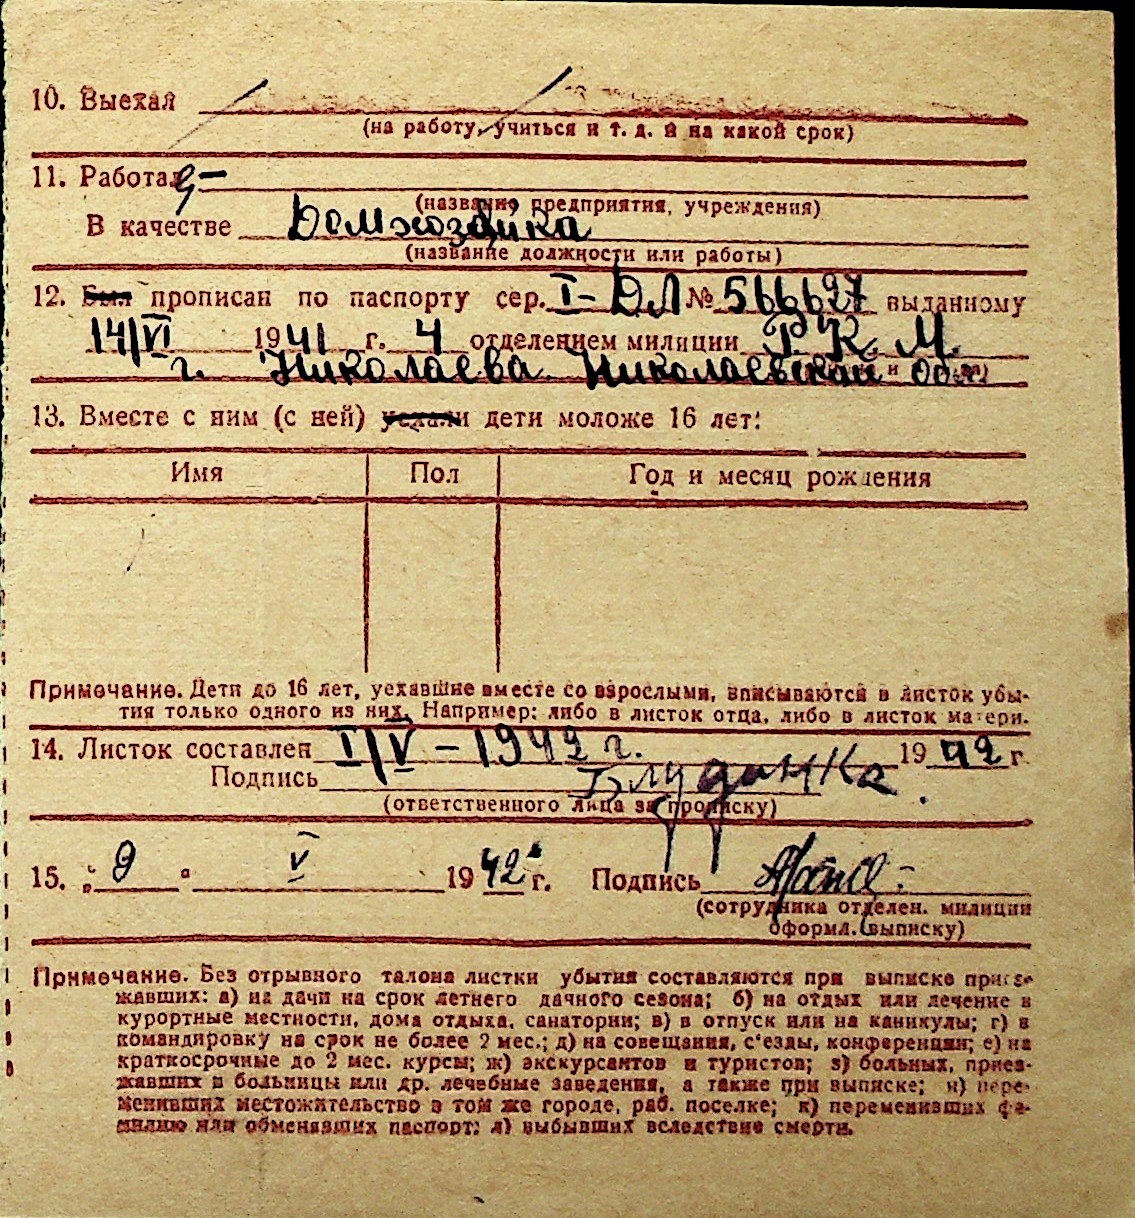 10. Выехал
(на работу, учиться и т. д. и на какой срок)
11. Работал –
(название предприятия, учреждения)
В качестве Домхозяйка
(название должности или работы)
12. Был прописан по паспорту сер. I-ДЛ № 566627 выданному
14/VI 1941 г. 4 отделением милиции Р. К. М.
г. Николаева Николаевской обл.
13. Вместе с ним (с ней) уехали дети моложе 16 лет:
Имя Пол Год и месяц рождения
Примечание. Дети до 16 лет, уехавшие вместе со взрослыми, вписываются в листок убы-
тия только одного из них. Например: либо в листок отца, либо в листок матери.
14. Листок составлен I/V – 1942 г. 1942 г
Подпись
(ответственного лица за прописку)
15. „9" V 1942 г. Подпись
(сотрудника отделен. милиции
оформл. выписку)
Примечание. Без отрывного талона листки убытия составляются при выписке приез-
жавших: а) на дачи на срок летнего дачного сезона; б) на отдых или лечение в
курортные местности, дома отдыха, санатории; в) в отпуск или на каникулы; г) в
командировку на срок не более 2 мес.; д) на совещания, с'езды, конференции; е) на
краткосрочные до 2 мес. курсы; ж) экскурсантов и туристов; з) больных, приез-
жавших в больницы или др. лечебные заведения, а также при выписке; и) пере-
менивших местожительство в том же городе, раб. поселке; к) переменивших фа-
милию или обменявших паспорт; л) выбывших вследствие смерти.